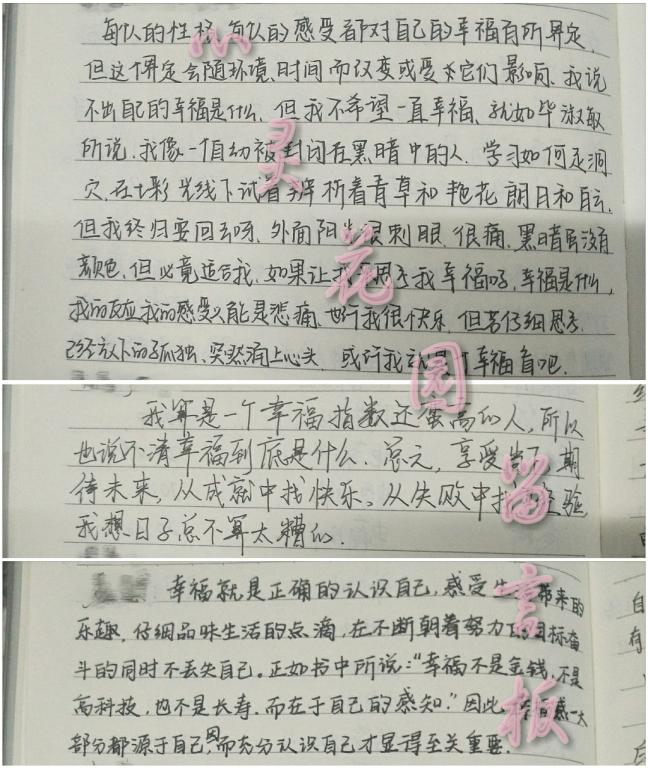 每个人的性格 每个人的感受都对自己的幸福有所界定,
但这个界定会随环境、时间而改变或受其它们影响. 我说
不出自己的幸福是什么, 但我不希望一直幸福、就如毕淑敏
所说.我像一个自幼被封闭在黑暗中的人. 学习如何走洞
穴. 在七彩光线下试着辨析着青草和艳花 朗日和白云.
但我终归要回去呀. 外面阳光很刺眼. 很痛. 黑暗虽没有
颜色, 但必竟适合我. 如果让我思考我幸福吗, 幸福是什么,
我的反应我的感受只能是悲痛、也许我很快乐. 但若仔细思考.
已经放下的孤独、突然涌上心头. 或许我就是 幸福盲吧.
我算是一个幸福指数还蛮高的人, 所以
也说不清幸福到底是什么. 总之, 享受当下, 期
待未来, 从成就中找快乐、从失败中找 经验
我想日子总不算太糟的.
幸福就是正确的认识自己, 感受生 带来的
乐趣, 仔细品味生活的点滴, 在不断朝着努力 目标奋
斗的同时不丢失自己。正如书中所说:“幸福不是金钱,不是
高科技, 也不是长寿. 而在于自己的感知.” 因此, 感一大
部分都源于自己,因而充分认识自己才显得至关重要.
心灵花园留言板